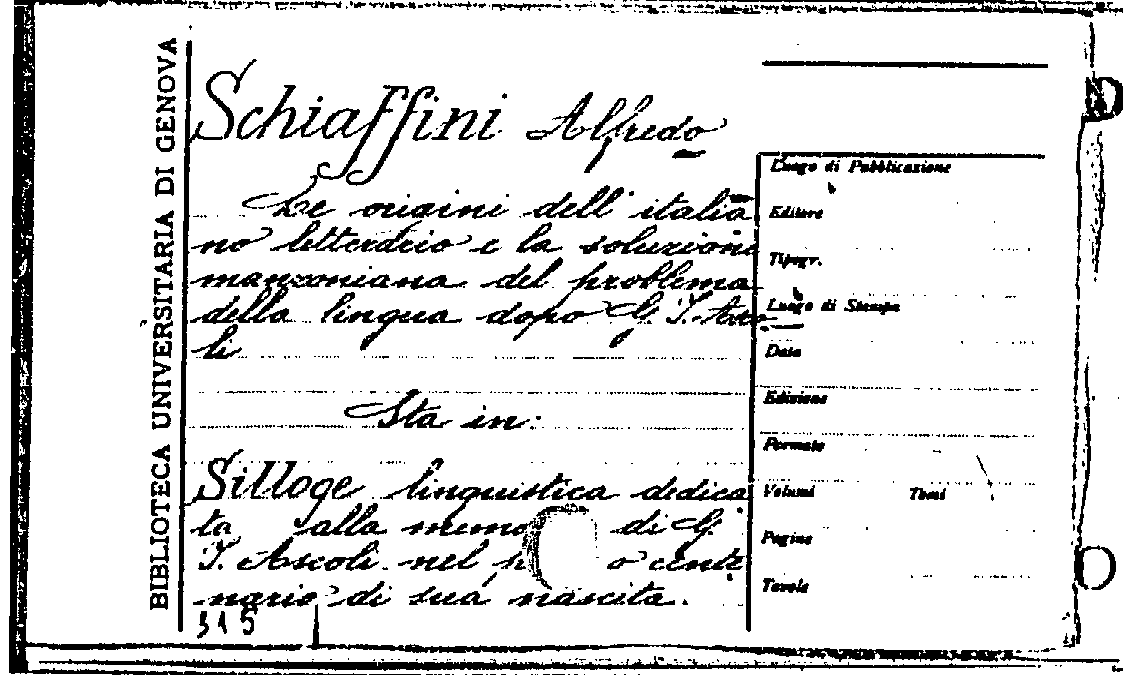 BIBLIOTECA UNIVERSITARIA DI GENOVA
Schiaffini Alfredo
Le origini dell'italia
no letterario e la soluzione
manzoniana del problema
della lingua dopo G. I. Asco
li
Sta in:
Silloge linguistica dedica
ta alla di G.
I. Ascoli nel cente
nario di sua nascita.
315
Luogo di Pubblicazione
Editore
Tipogr.
Luogo di Stampa
Data
Edizione
Formato
Volumi Tomi
Pagine
Tavole